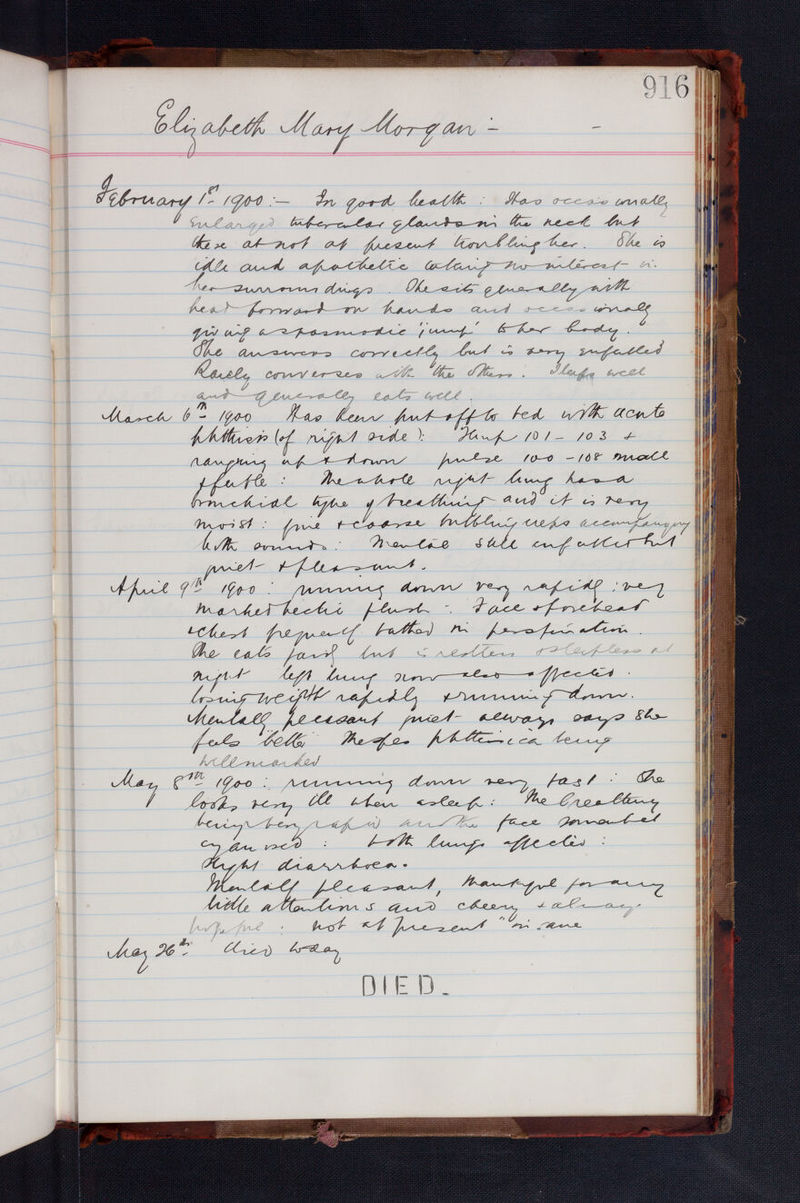 916
Elizabeth Mary Morgan -
February 1st 1900:- In good health: Has occasionally
enlarged tubercular glands in the neck but
these at not at present troubling her. She is
idle and apathetic taking no interest in
her surroundings. She sits generally with
head forward on hands and occasionally
giving a spasmodic 'jump' to her body.
She answers correctly but is very
Rarely converses with the others. Sleeps well
and generally eats well.
March 6th 1900 Has been put off to bed with acute
phthisis (of right side): Temp 101-103 +
ranging up & down pulse 100-108 small
& feeble: The whole right lung has a
bronchial type of breathing and it is very
moist: fine & coarse bubbling accompanying
both sounds: Mental still but
quiet & pleasant.
April 9th 1900: running down very rapidly: very
marked hectic flush: Face & forehead
& chest frequently bathed in perspiration.
She eats fairly but is restless & sleepless at
night left lung now also affected.
losing weight rapidly & running down.
Mentally pleasant quiet always says she
feels 'better' The spes phthisica being
well marked
May 8th 1900: running down very fast: She
looks very ill when asleep: The breathing
being very rapid and the face somewhat
cyanosed: both lungs affected:
slight diarrhoea.
Mentally pleasant, thankful for any
little attentions and cheery & always
hopeful: not at present "insane
May 26th. Died today
DIED.